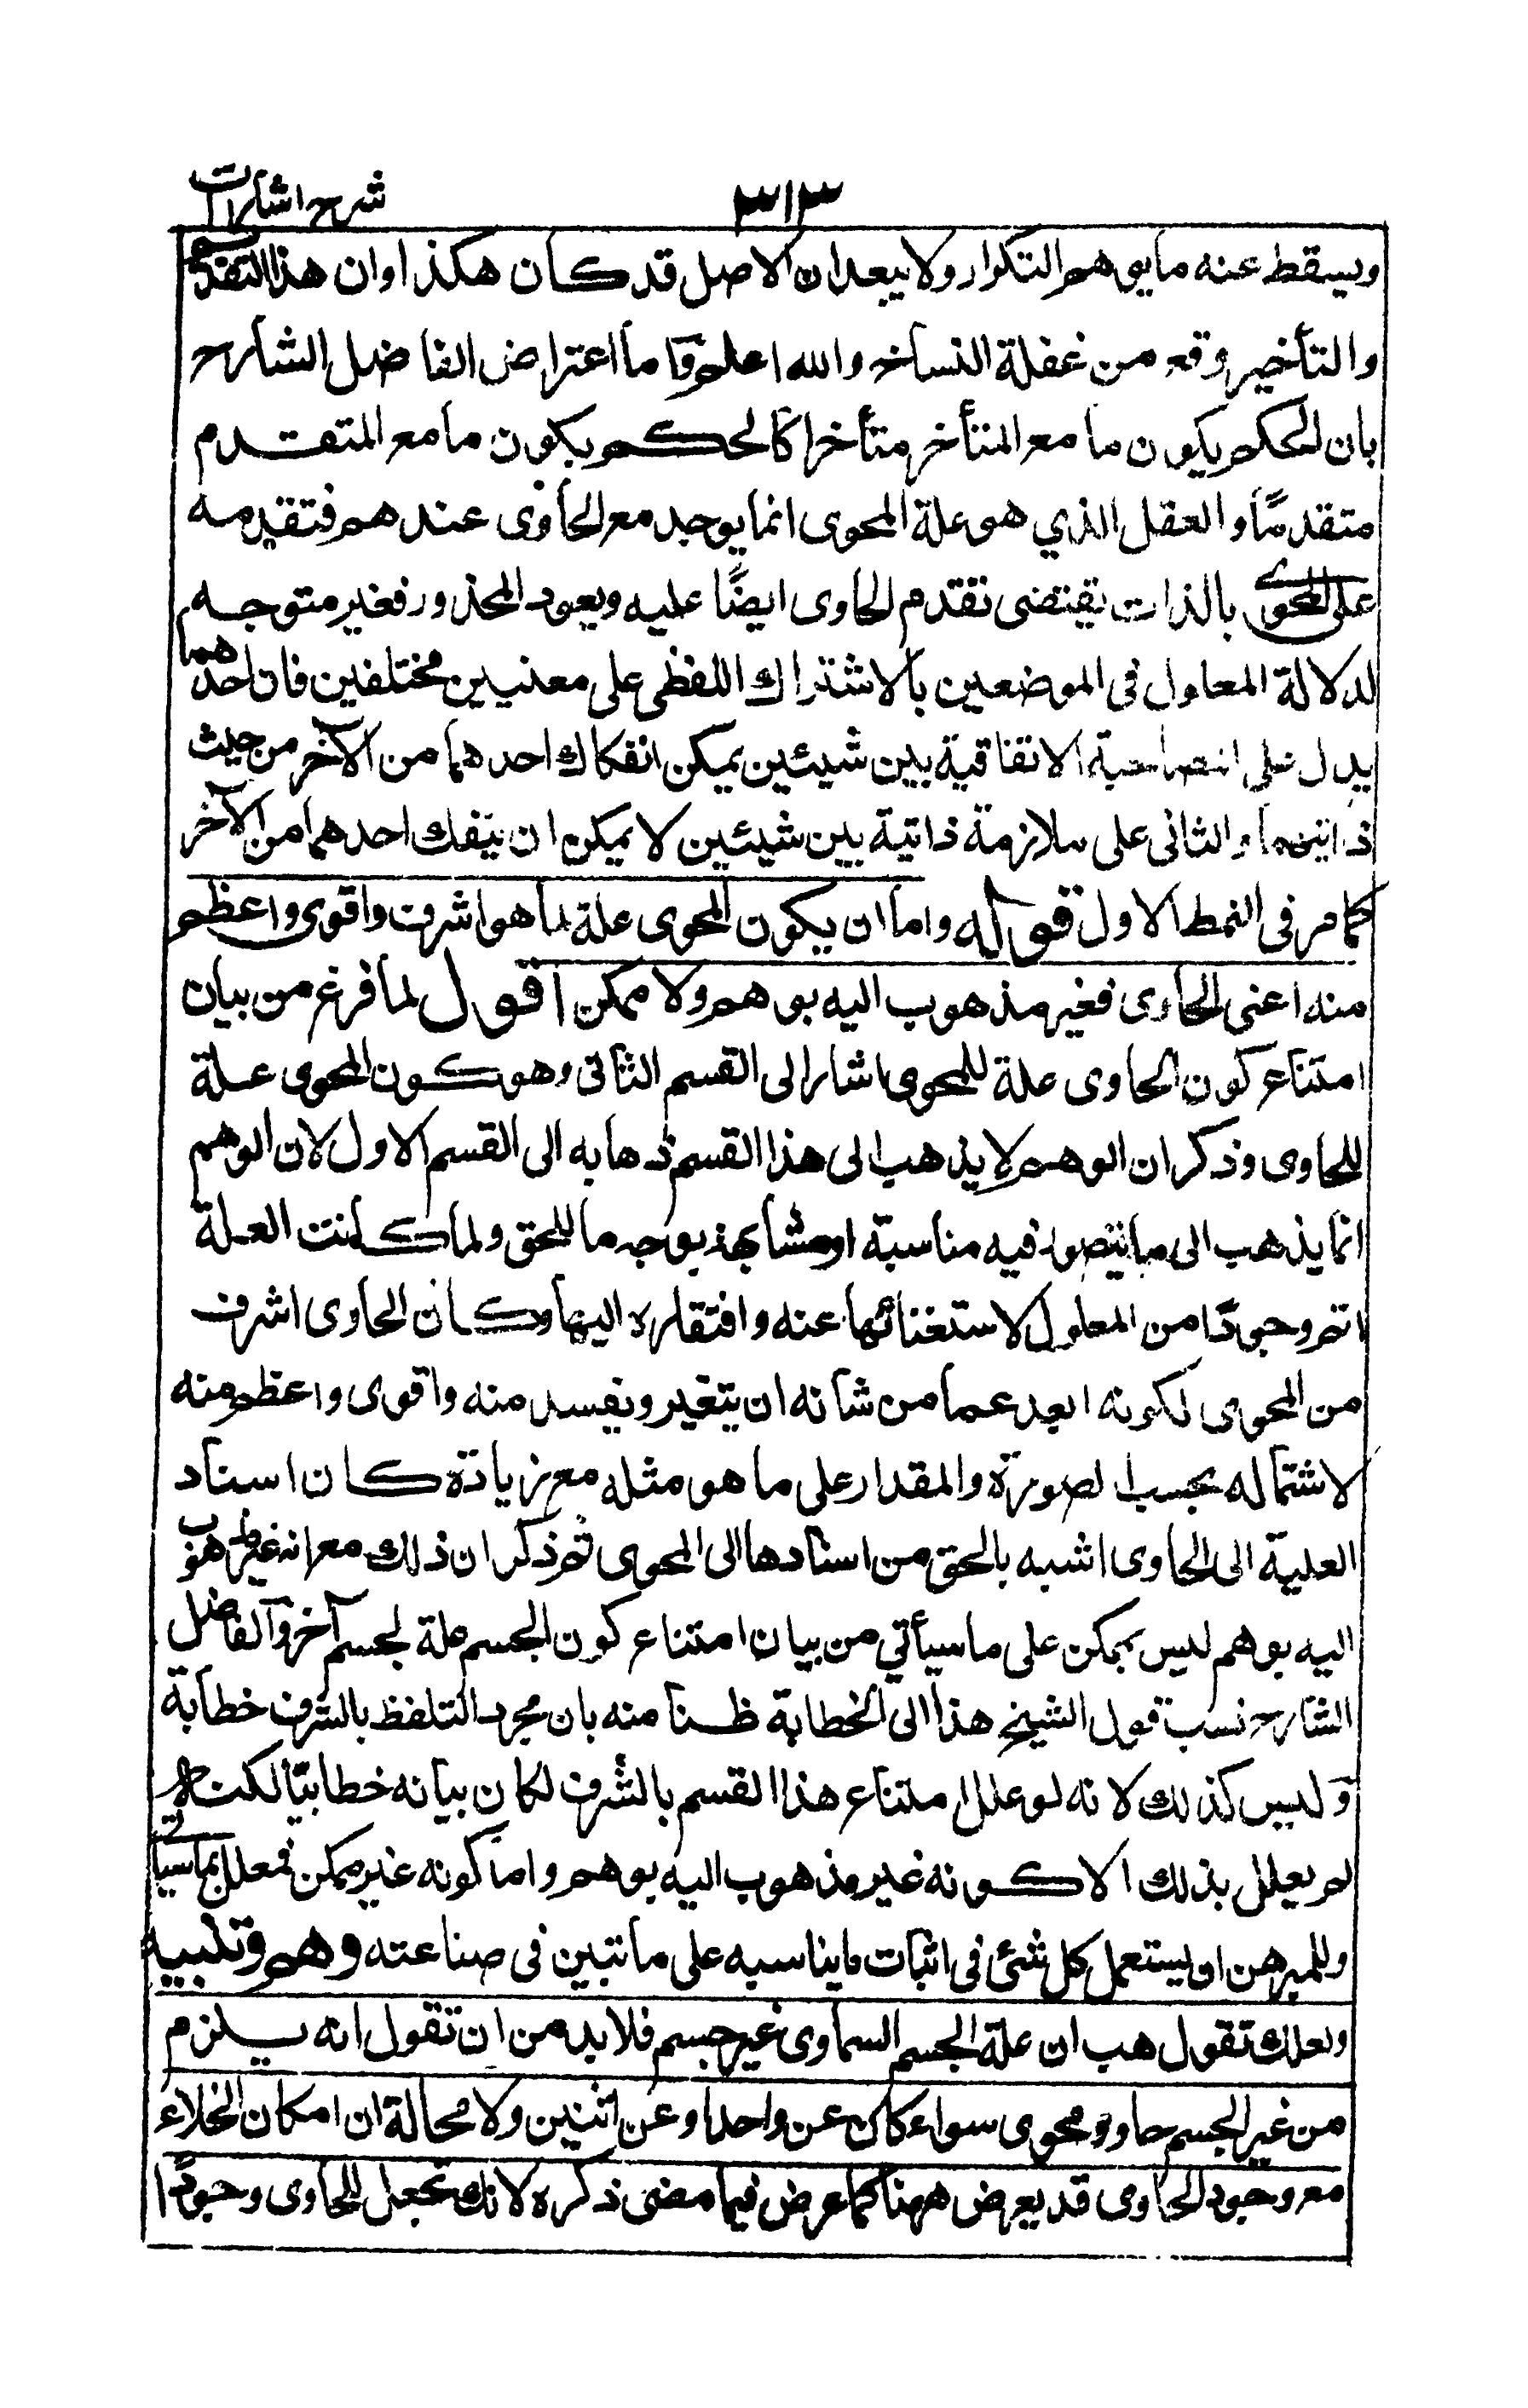 شرح اشارات
٣١٣
ويسقط عنه ما يوهم التكرار ولا يبعد ان الاصل قد كان هكذا وان هذا التقديم
والتأخير وقع من غفلة النساخ والله اعلم واما اعتراض الفاضل الشارح
بان الحكم بكون ما مع المتأخر متأخرا كالحكم بكون ما مع المتقدم
متقدمًا والعقل الذي هو علة المحوى انما يوجد مع الحاوى عندهم فتقدمه
على المحوى بالذات يقتضى تقدم الحاوى ايضًا عليه ويعود المحذور فغير متوجه
لدلالة المعلول فى الموضعين بالاشتراك اللفظى على معنيين مختلفين فان احدهما
يدل على المصاحبة الاتفاقية بين شيئين يمكن انفكاك احدهما من الآخر من حيث
ذاتيهما والثانى على ملازمة ذاتية بين شيئين لا يمكن ان ينفك احدهما من الآخر
كما مر فى النمط الاول قوله واما ان يكون المحوى علة لما هو اشرف واقوى واعظم
منه اعنى الحاوى فغير مذهوب اليه بوهم ولا ممكن اقول لما فرغ من بيان
امتناع كون الحاوى علة للمحوى اشار الى القسم الثانى وهو كون المحوى علة
للحاوى وذكر ان الوهم لا يذهب الى هذا القسم ذهابه الى القسم الاول لان الوهم
انما يذهب الى ما يتصور فيه مناسبة او مشابهة بوجه ما للحق ولما كانت العلة
اتم وجودًا من المعلول لاستغنائها عنه وافتقاره اليها وكان الحاوى اشرف
من المحوى لكونه ابعد عما من شانه ان يتغير ويفسد منه واقوى واعظم منه
لاشتماله بحسب الصورة والمقدار على ما هو مثله مع زيادة كان اسناد
العلية الى الحاوى اشبه بالحق من اسنادها الى المحوى ثم ذكر ان ذلك مع انه غير مذهوب
اليه بوهم ليس بممكن على ما سيأتي من بيان امتناع كون الجسم علة لجسم آخر والفاضل
الشارح نسب قول الشيخ هذا الى الخطابة ظنا منه بان مجرد التلفظ بالشرف خطابة
وليس كذلك لانه لو علل امتناع هذا القسم بالشرف لكان بيانه خطابيًا لكنه
لم يعلل بذلك الا كونه غير مذهوب اليه بوهم واما كونه غير ممكن فمعلل بما سيأتى
وللمبرهن ان يستعمل كل شئ فى اثبات ما يناسبه على ما تبين فى صناعته وهم وتنبيه
ولعلك تقول هب ان علة الجسم السماوى غير جسم فلا بد من ان تقول انه يلزم
من غير الجسم حاو ومحوى سواء كان عن واحد او عن اثنين ولا محالة ان امكان الخلاء
مع وجود الحاوى قد يعرض ههنا كما عرض فيما مضى ذكره لانك تجعل للحاوى وجودًا